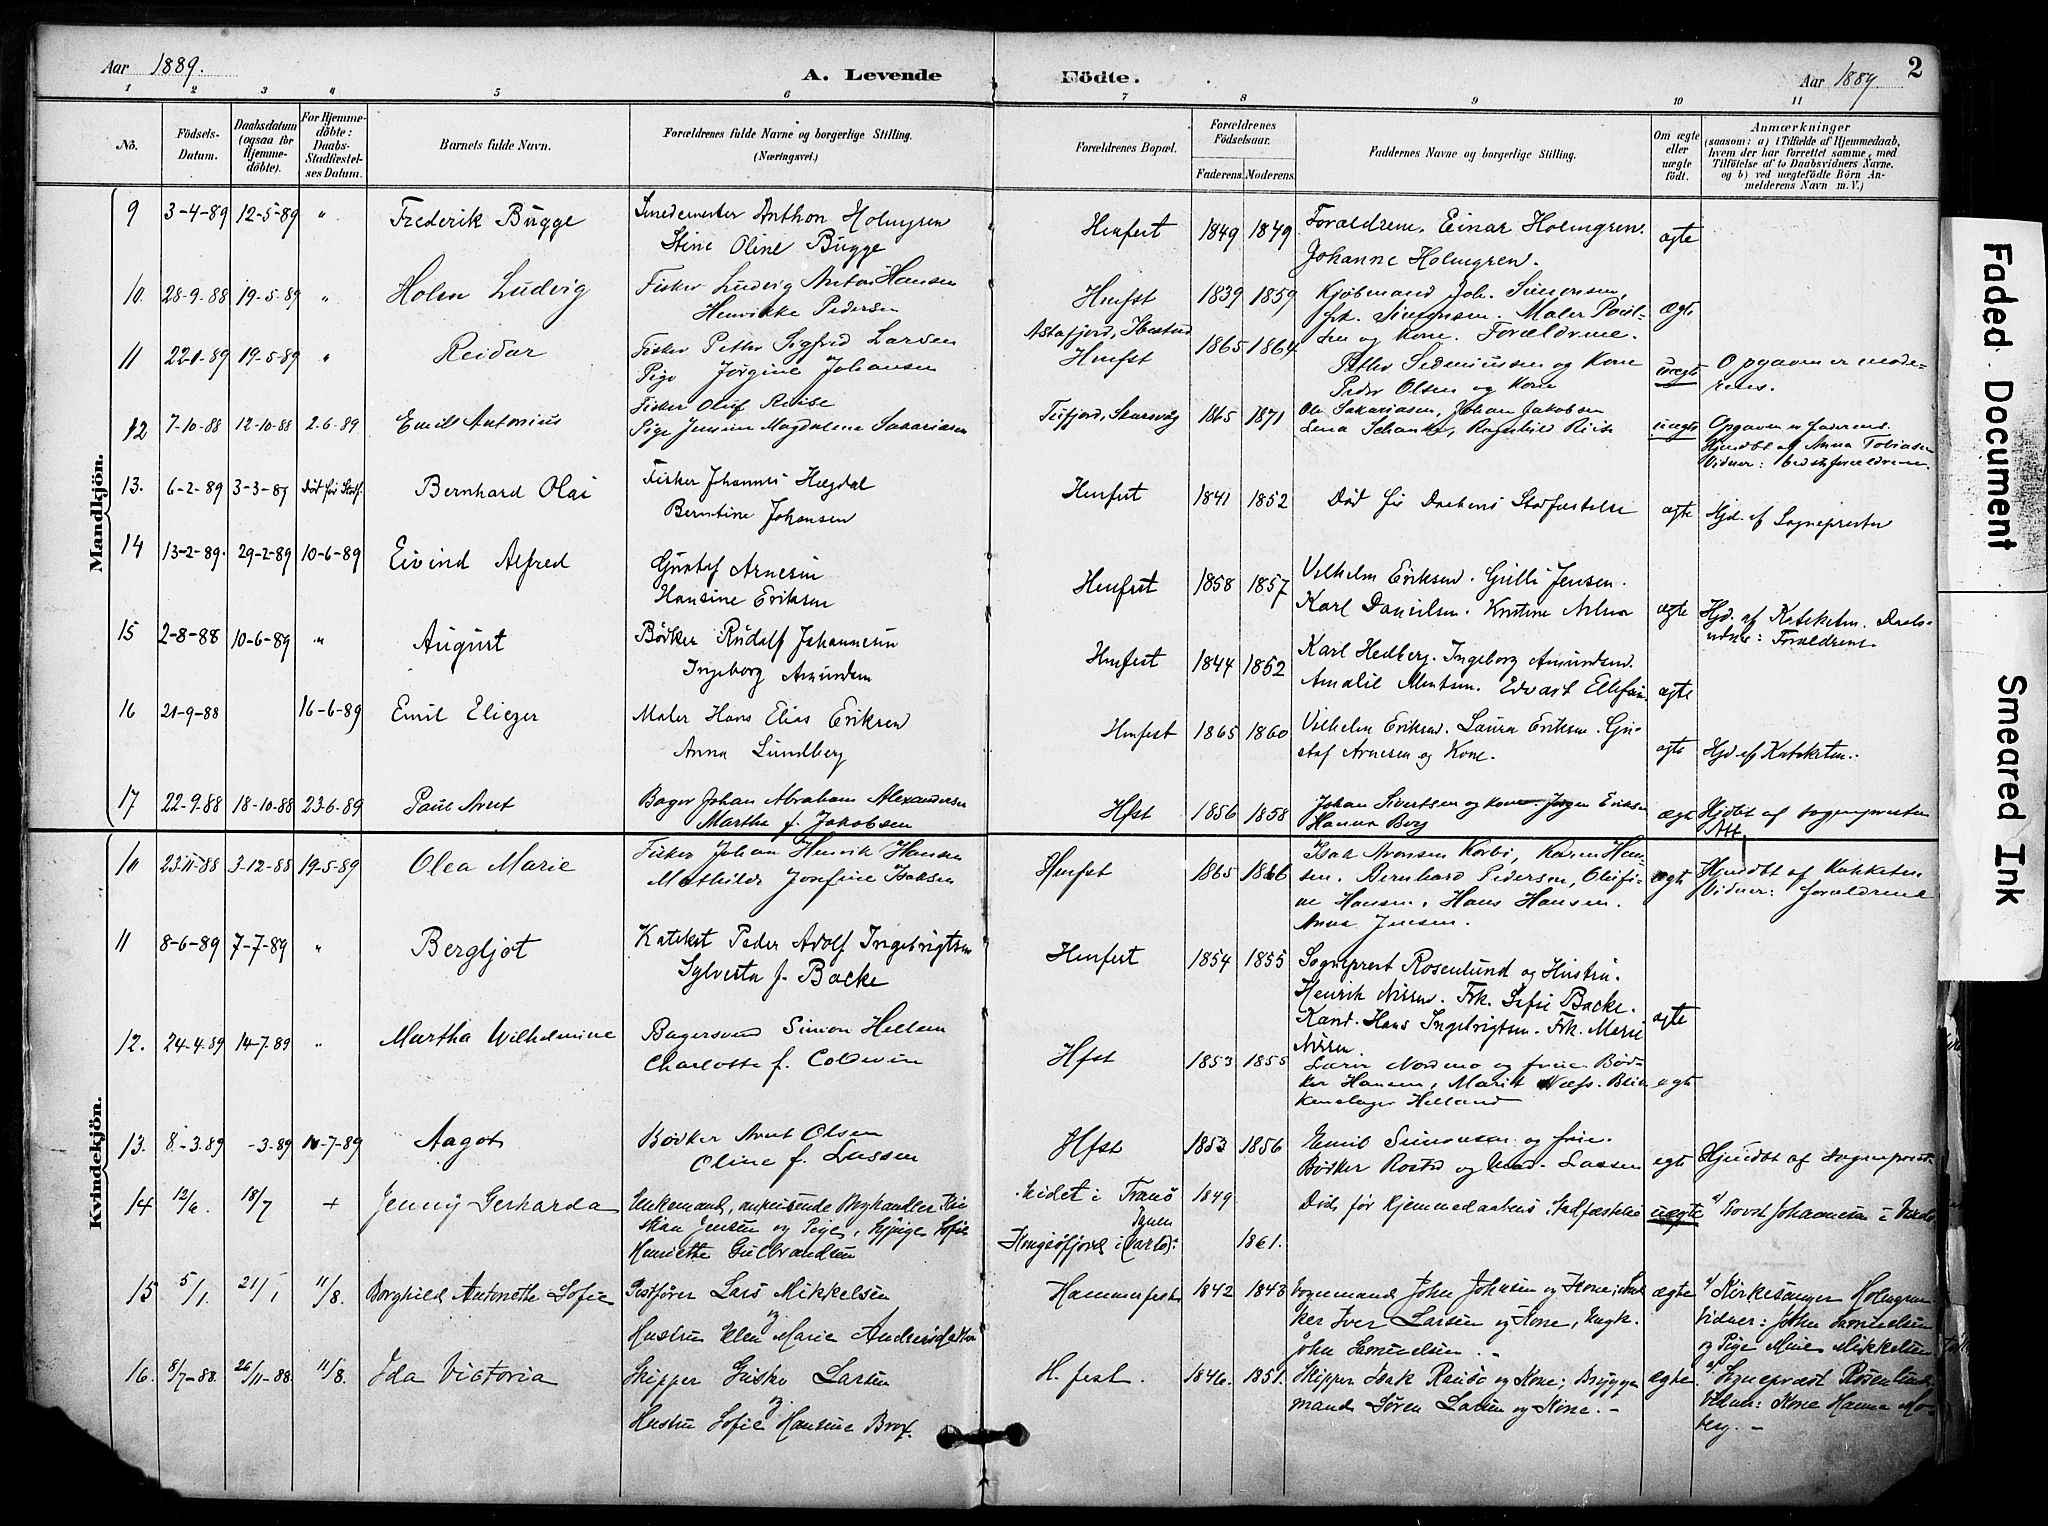 Aar 1889.
A. Levende Födte.
Aar 1889.
2
1 2 3 4 5 6 7 8 9 10 11
No.
Födsels-Datum.
Daabsdatum (ogsaa for Hjemme-döbte).
For Hjemme-döbte: Daabs-Stadfæstel-ses Datum.
Barnets fulde Navn.
Forældrenes fulde Navne og borgerlige Stilling.
(Næringsvei.)
Forældrenes Bopæl.
Forældrenes Födselsaar.
Faderens. Moderens.
Faddernes Navne og borgerlige Stilling.
Om ægte eller uægte födt.
Anmærkninger
(saasom: a) i Tilfælde af Hjemmedaab,
hvem der har forrettet samme, med
Tilföielse af to Daabsvidners Navne.
og b) ved uægtefödte Börn An-
melderens Navn m. V.)
Mandkjön.
9 3-4-89 12-5-89 " Frederik Bugge Smedemester Anthon Holmgren
Stine Oline Bugge
Hmfest 1849 1849 Forældrene. Einar Holmgren.
Johanne Holmgren. ægte
10. 28-9-88 19-5-89 " Holm Ludvig Fisker Ludvig Anton Hansen
Henrikke Pedersen
Hmfst 1839 1859 Kjøbmand Joh. Simonsen,
frk. Simonsen. Maler Poul-
sen og Kone. Forældrene. ægte
11 22-1-89 19-5-89 " Reidar Fisker Peter Sigfrid Larsen
Pige Jørgine Johansen
Astafjord, Ibestad
Hmfst 1865 1864 Peder Olsen og Kone uægte Opgaven er mode-
rens.
12 7-10-88 12-10-88 2-6-89 Emil Antonius Fisker Oluf Reise
Pige Jensine Magdalena Sakariasen
1865 1871 Ole Sakariasen, Johan Jakobsen
Lena Schanke, Ragnhild uægte Opgaven er faderens.
Hjmdbt af Anna Tobiasen
Vidner: bedsteforældrene
13. 6-2-89 3-3-89 Død før Stadf. Bernhard Olai Fisker Johannes Hægdal
Berntine Johansen
Hmfest 1841 1852 Død før Daabens Stadfæstelse ægte Hjd. af Sognepresten
14 13-2-89. 29-2-89 10-6-89 Eivind Alfred Gustaf Arnesen
Hansine Eriksen
Hmfest 1858 1857 Vilhelm Eriksen. Gulli Jensen.
Karl Danielsen. Kristine ægte Hjd. af Kateketen. Daabs-
vidner: Forældrene.
15 2-8-88 10-6-89 " August Bødker Rudolf Johannesen
Ingeborg Amundsen
Hmfest 1844 1852 Karl Hedberg. Ingeborg Amundsen.
Amalie Edvart Ellefsen ægte
16 21-9-88 16-6-89 Emil Eliezer Maler Hans Elias Eriksen
Anna Lundberg
Hmfest 1865 1860 Vilhelm Eriksen. Laura Eriksen. Gu-
staf Arnesen og Kone. ægte Hjd. af Kateketen.
17 22-9-88 18-10-88 23-6-89 Paul Arnt Bager Johan Abraham Alexandersen
Martha f. Jakobsen
Hfst 1856 1858 Johan Sivertsen og kone Jørgen Eriksen
Hanna Berg ægte Hjdbt af sognepresten
Att.
Kvindekjön.
10 23-11-88 3-12-88 19-5-89 Olea Marie Fisker Johan Henrik Hansen
Mathilde Josefine Isaksen
Hmfst 1865 1866 Isak Aronsen Korbi, Karen Han-
sen. Bernhard Pedersen, Olufi-
ne Hansen. Hans Hansen.
Anna Jensen. ægte Hjmdbt af Kateketen
Vidner: forældrene
11 8-6-89 7-7-89 " Bergljot Kateket Peder Adolf Ingebrigtsen
Sylvesta f. Backe
Hmfest 1854 1855 Sogneprest Rosenlund og Hustru.
Henrik Nissen. Frk. Sofie Backe.
Kand. Hans Ingebrigtsen. Frk. Marie
Nissen. ægte
12. 24-4-89 14-7-89 " Martha Wilhelmine Bagersvend Simon Hellem
Charlotte f. Coldevin
Hfst 1853 1855 Lærer Nordmo og frue. Bød-
ker Hansen, Marit Næss. Blik-
kenslager Helland ægte
13. 8-3-89 -3-89 -7-89 Aagot Bødker Arnt Olsen
Oline f. Lassen
Hfst 1853 1856 Emil Simonsen og frue.
Bødker Rostad og Mad. Lassen ægte Hjmdbt af sogneprest
14 12/6. 18/7 + Jenny Gerharda Enkemand, Kri-
stian Jensen og Pige, Sofie
Henriette Gulbrandsen
i Tranö 1849
Kongsöfjord i 1861.
Død før Hjemmedaabens Stadfæstelse uægte
15 5/1. 21/1 11/8. Borghild Antonette Sofie Postfører Lars Mikkelsen
og
Hustru Ellen Marie
Hammerfest 1842 1843 Vognmand John Johnsen og Kone;
ker Iver Larsen og Kone, Ungk.
John Samuelsen. - ægte a/ Kirkesanger Holmgren
Vidner: John Samuelsen
og Pige Mikkelsen
16. 8/7-88. 26/11-88. 11/8. Ida Victoria Skipper Gustav Larsen
og
Hustru Sofie Hansine Brox.
H.fest. 1846. 1851. Skipper Isak Kone; Brygge-
mand Sören Larsen og Kone. - ægte. a/ Sogneprest Rosenlund.
Vidner: Kone Hanna Mo-
berg. -
Faded Document
Smeared Ink